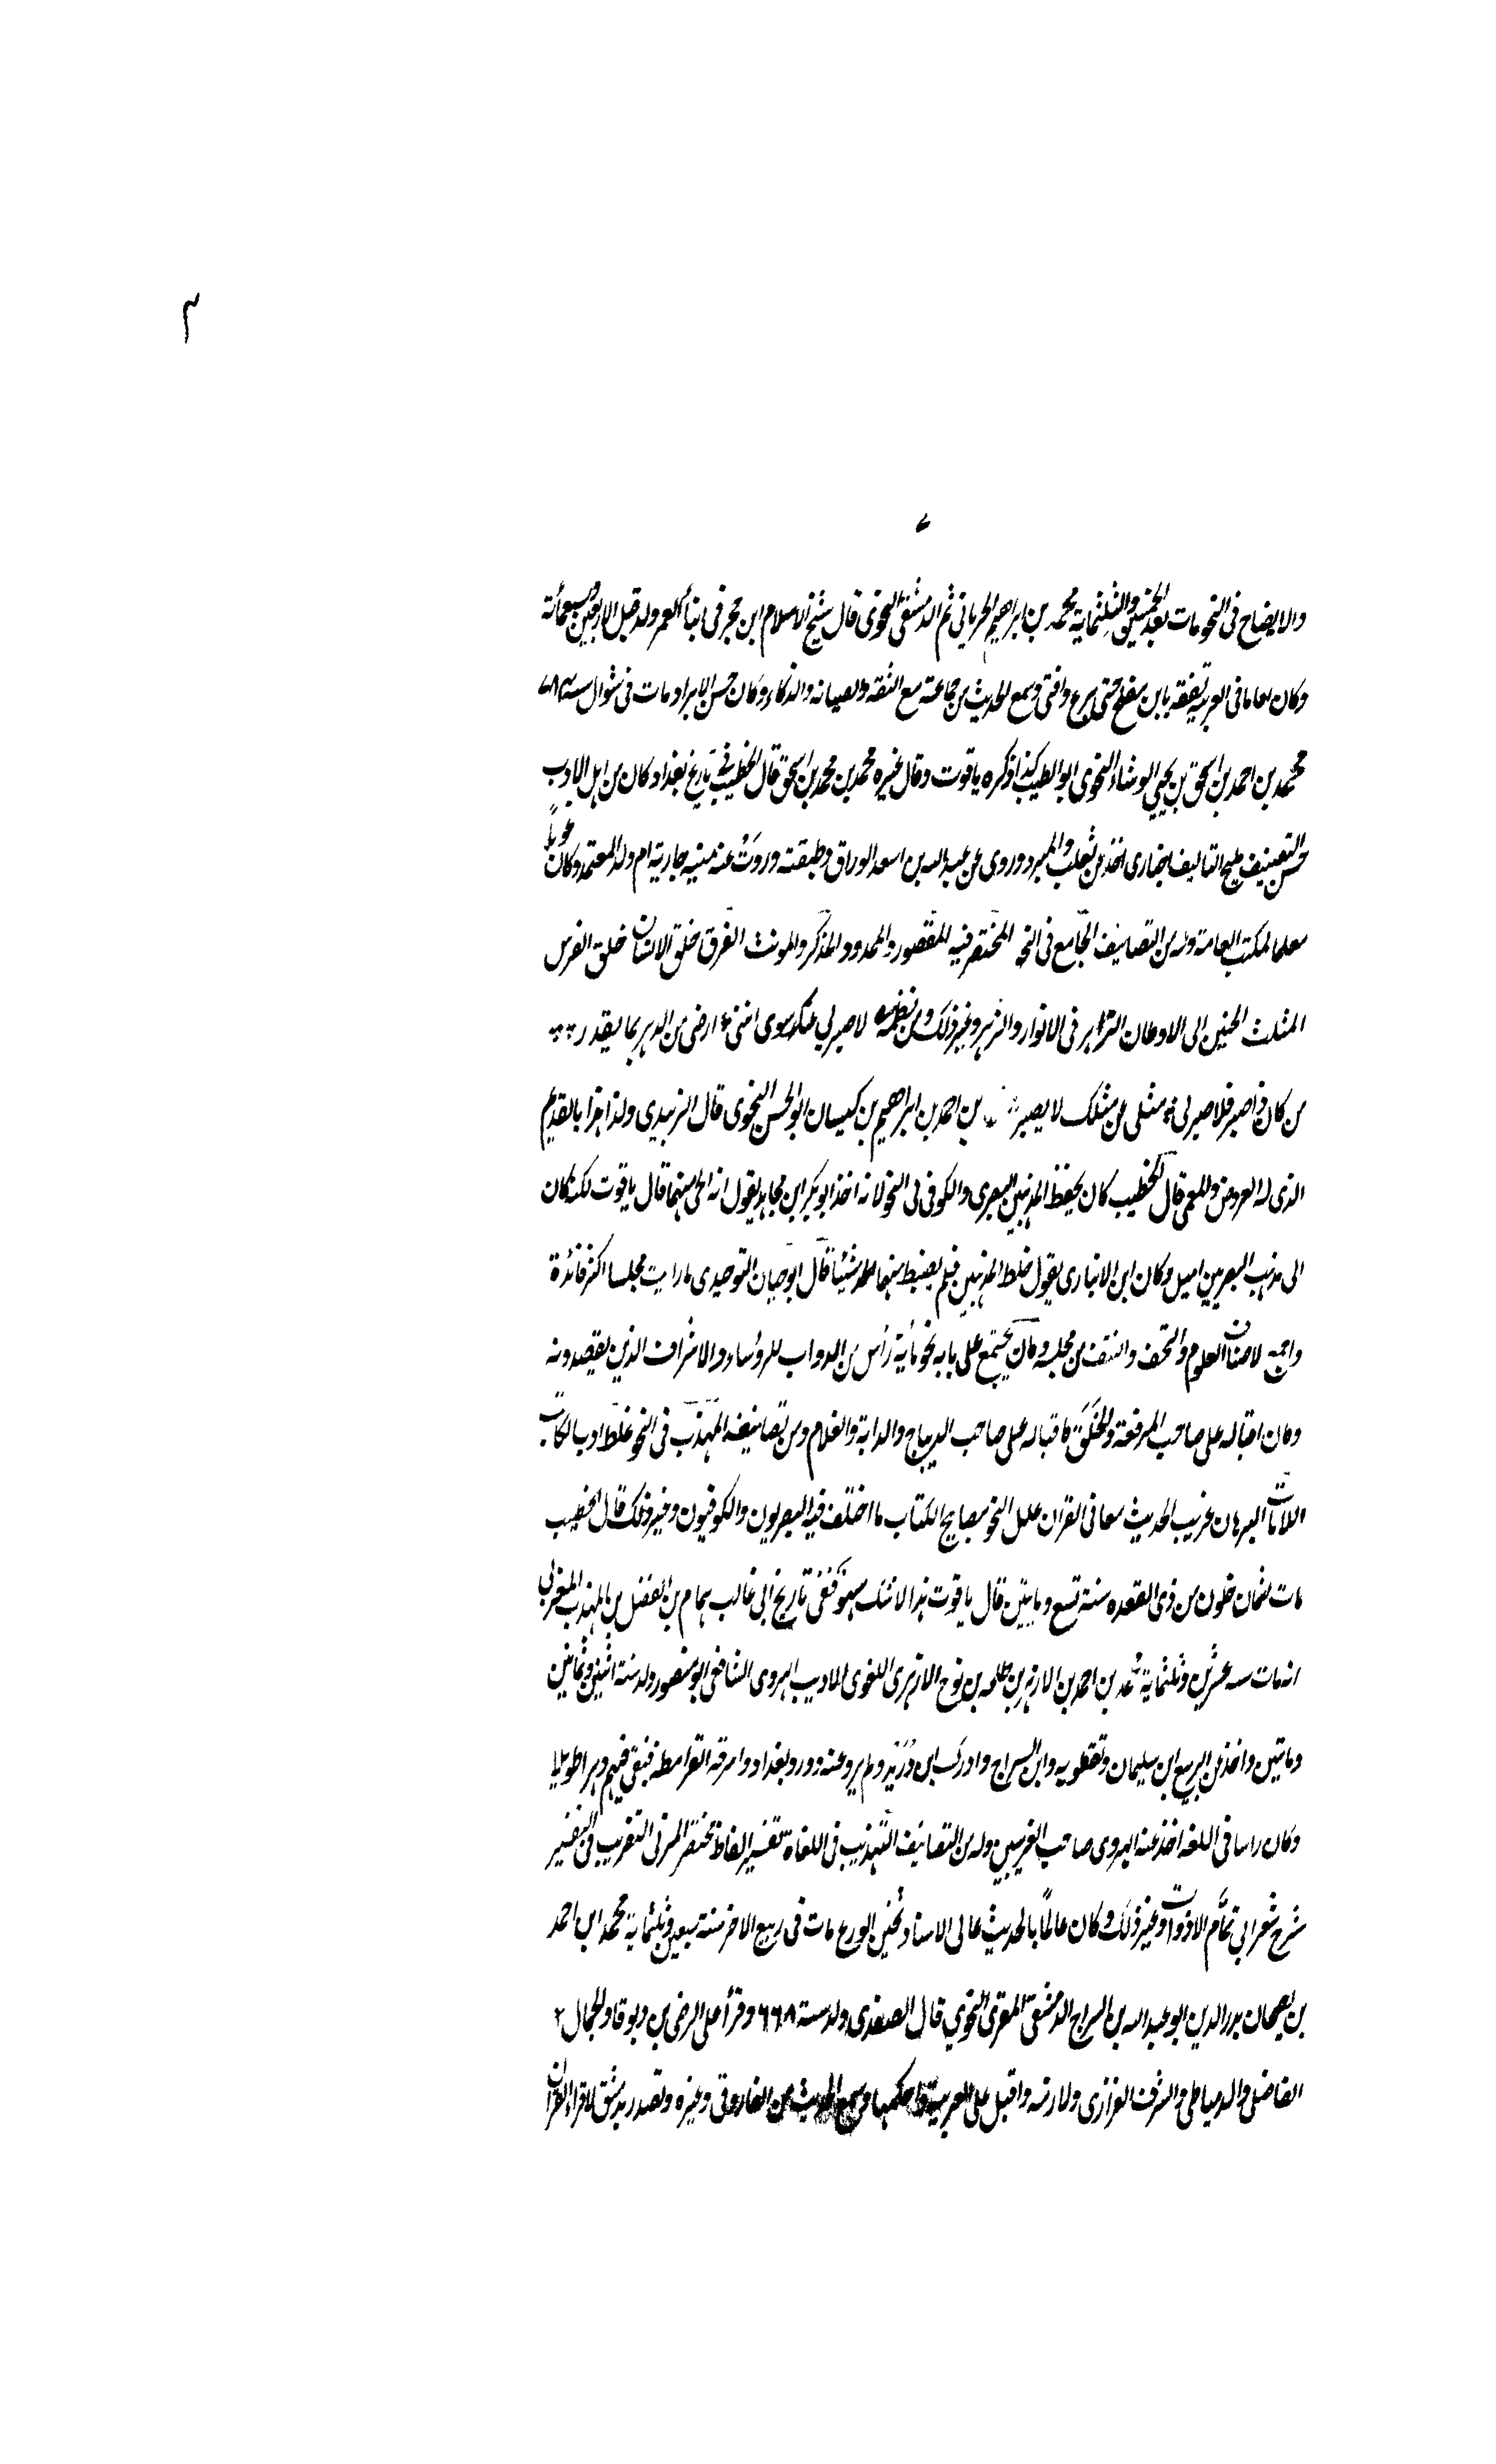 ٣
والايضاح فى النحو مات بعد الخمسين والثلثماية محمد بن ابراهيم الحرمانى ثم الدمشقى النحوى قال شيخ الاسلام ابن حجر فى ابناء العمر ولد قبل الاربعين وسبعمائة
وكان اماما فى العربية تفقه بابن مفلح حتى برع وافتى وسمع الحديث من جماعة مع الثقة والصيانه والذكاء وكان حسن الايراد مات فى شوال سنة ٧٨٤
محمد بن احمد بن اسحق بن يحيى الوشاء النحوى ابو الطيب كذا ذكره ياقوت وقال غيره محمد بن محمد بن اسحق قال الخطيب فى تاريخ بغداد كان من اهل الادب
حسن التصنيف مليح التاليف اخبارى اخذ عن ثعلب والمبرد وروى عن عبدالله بن اسعد الوراق وطبقته وروت عنه منيه جارية ام ولد المعتمد وكان نحويا
معلما لمكتب العامة وله من التصانيف الجامع فى النحو المختصر فيه المقصور والممدود المذكر والمونث الفرق خلق الانسان خلق الفرس
المثلث الحنين الى الاوطان الزاهر فى الانوار والزهر وغير ذلك ومن نظمه لا صبر لى عنك سوى اننى ارضى من الدهر بما يقدر
من كان ذا صبر فلا صبر لى مثلى عن مثلك لا يصبر بن احمد بن ابراهيم بن كيسان ابو الحسن النحوى قال الزبيدى وليس هذا بالقديم
الذى له العروض والمعمى قال الخطيب كان يحفظ المذهبين البصرى والكوفى فى النحو لانه اخذ ابو بكر ابن مجاهد يقول انه انحى منهما قال ياقوت لكنه كان
الى مذهب البصريين اميل وكان ابن الانبارى يقول خلط المذهبين فلم يضبط منهما شيئا قال ابو حيان التوحيدى ما رايت مجلسا اكثر فائدة
واجمع لاصناف العلوم والتحف والنتف من مجلسه وكان يجتمع على بابه نحو مائة رأس من الدواب للرؤساء والاشراف الذين يقصدونه
وكان اقباله على صاحب المرقعة والخلق كاقباله على صاحب الديباج والدابة والغلام ومن تصانيفه المهذب فى النحو غلط ادب الكاتب
اللامات البرهان غريب الحديث معانى القران علل النحو مصابيح الكتاب ما اختلف فيه البصريون والكوفيون وغير ذلك قال الخطيب
مات لثمان خلون من ذى القعده سنة تسع و مايتين قال ياقوت هذا لا شك سهو ففى تاريخ ابى غالب همام بن الفضل بن المهذب المغربى
انه مات سنه عشرين وثلثماية محمد بن احمد بن الازهر بن طلحه بن نوح الازهرى اللغوى الاديب الهروى الشافعى ابو منصور ولد سنة اثنين وثمانين
ومائتين واخذ عن الربيع ابن سليمان ونفطويه وابن السراج وادرك ابن دريد ولم يرو عنه وورد بغداد واسرته القرامطه فبقى فيهم دهرا طويلا
وكان راسا فى اللغه اخذ عنه الهروى صاحب الغريبين وله من التصانيف التهذيب فى اللغة تفسير الفاظ مختصر المزنى التقريب فى التفسير
شرح شعر ابى تمام الادوات وغير ذلك وكان عالما بالحديث عالى الاسناد ثخين الورع مات فى ربيع الاخر سنة سبعين وثلثماية محمد ابن احمد
بن بصحان بدر الدين ابو عبد الله بن السراج الدمشقى المقرى النحوي قال الصفدى ولد سنة ٦٦٨ وقرأ على الرضى بن دبوقا والجمال
الفاضلى والدمياطى والشرف الفزارى ولازمه واقبل على العربية واحكمها وسمع الحديث من الفاروقى وغيره وتصدر بدمشق لاقراء القران